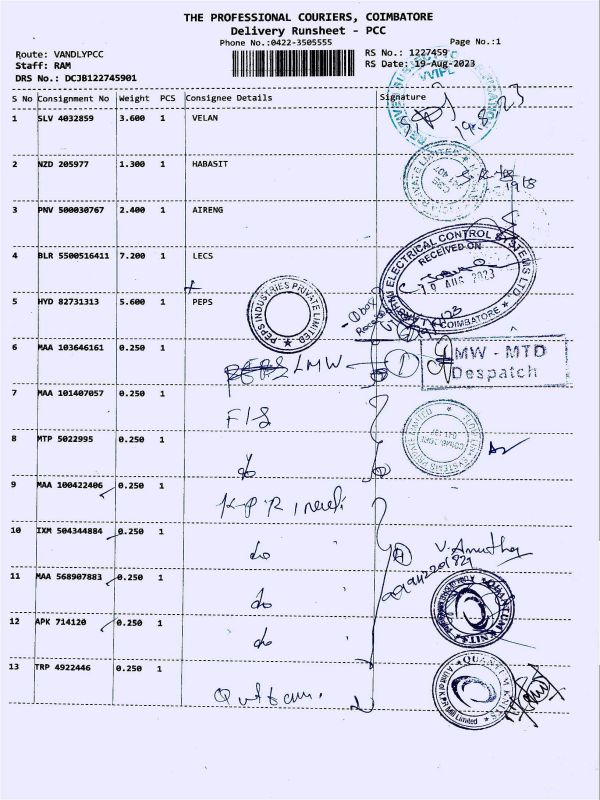 THE PROFESSIONAL COURIERS, COIMBATORE
Delivery Runsheet - PCC
Phone No.:0422-3505555
Page No.:1
Route: VANDLYPCC
RS No.: 1227459
Staff: RAM
RS Date: 19-Aug-2023
DRS No.: DCJB122745901
S No Consignment No Weight PCS Consignee Details Signature
1 SLV 4032859 3.600 1 VELAN
19.8.23
2 NZD 205977 1.300 1 HABASIT
3 PNV 500030767 2.400 1 AIRENG
4 BLR 5500516411 7.200 1 LECS
ELECTRICAL CONTROL SYSTEMS LTD.
RECEIVED ON
19 AUG 2023
COIMBATORE
5 HYD 82731313 5.600 1 PEPS
PEPS INDUSTRIES PRIVATE LIMITED
6 MAA 103646161 0.250 1 LMW
LMW - MTD
Despatch
7 MAA 101407057 0.250 1 FIS
8 MTP 5022995 0.250 1 do
9 MAA 100422406 0.250 1 KPR
10 IXM 504344884 0.250 1 do
11 MAA 568907883 0.250 1 do
12 APK 714120 0.250 1 do
QUANTUM KNITS
13 TRP 4922446 0.250 1
QUANTUM KNITS